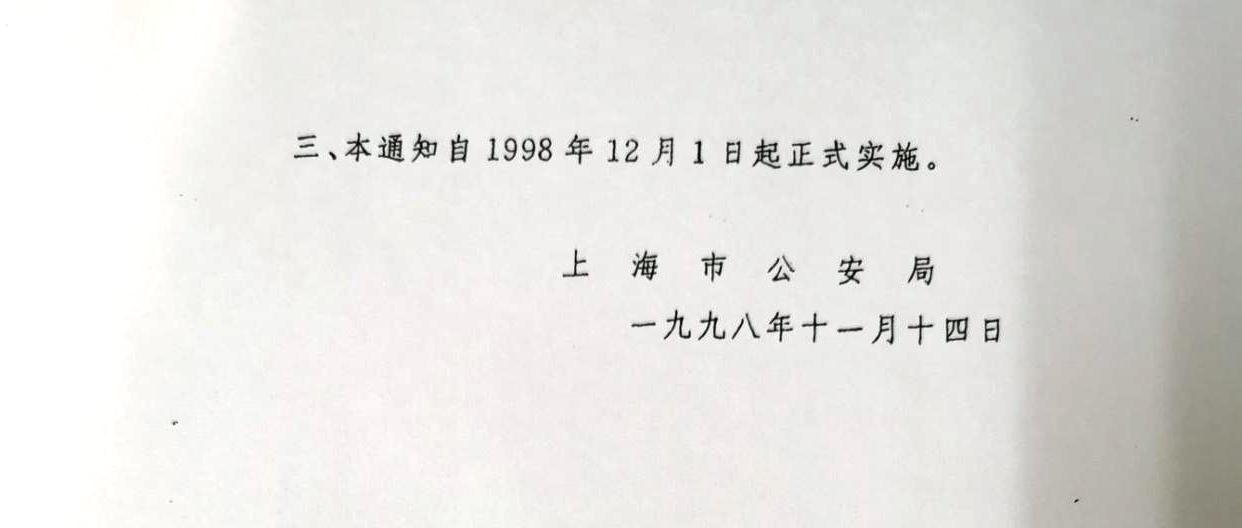 三、本通知自1998年12月1日起正式实施。
上海市公安局
一九九八年十一月十四日